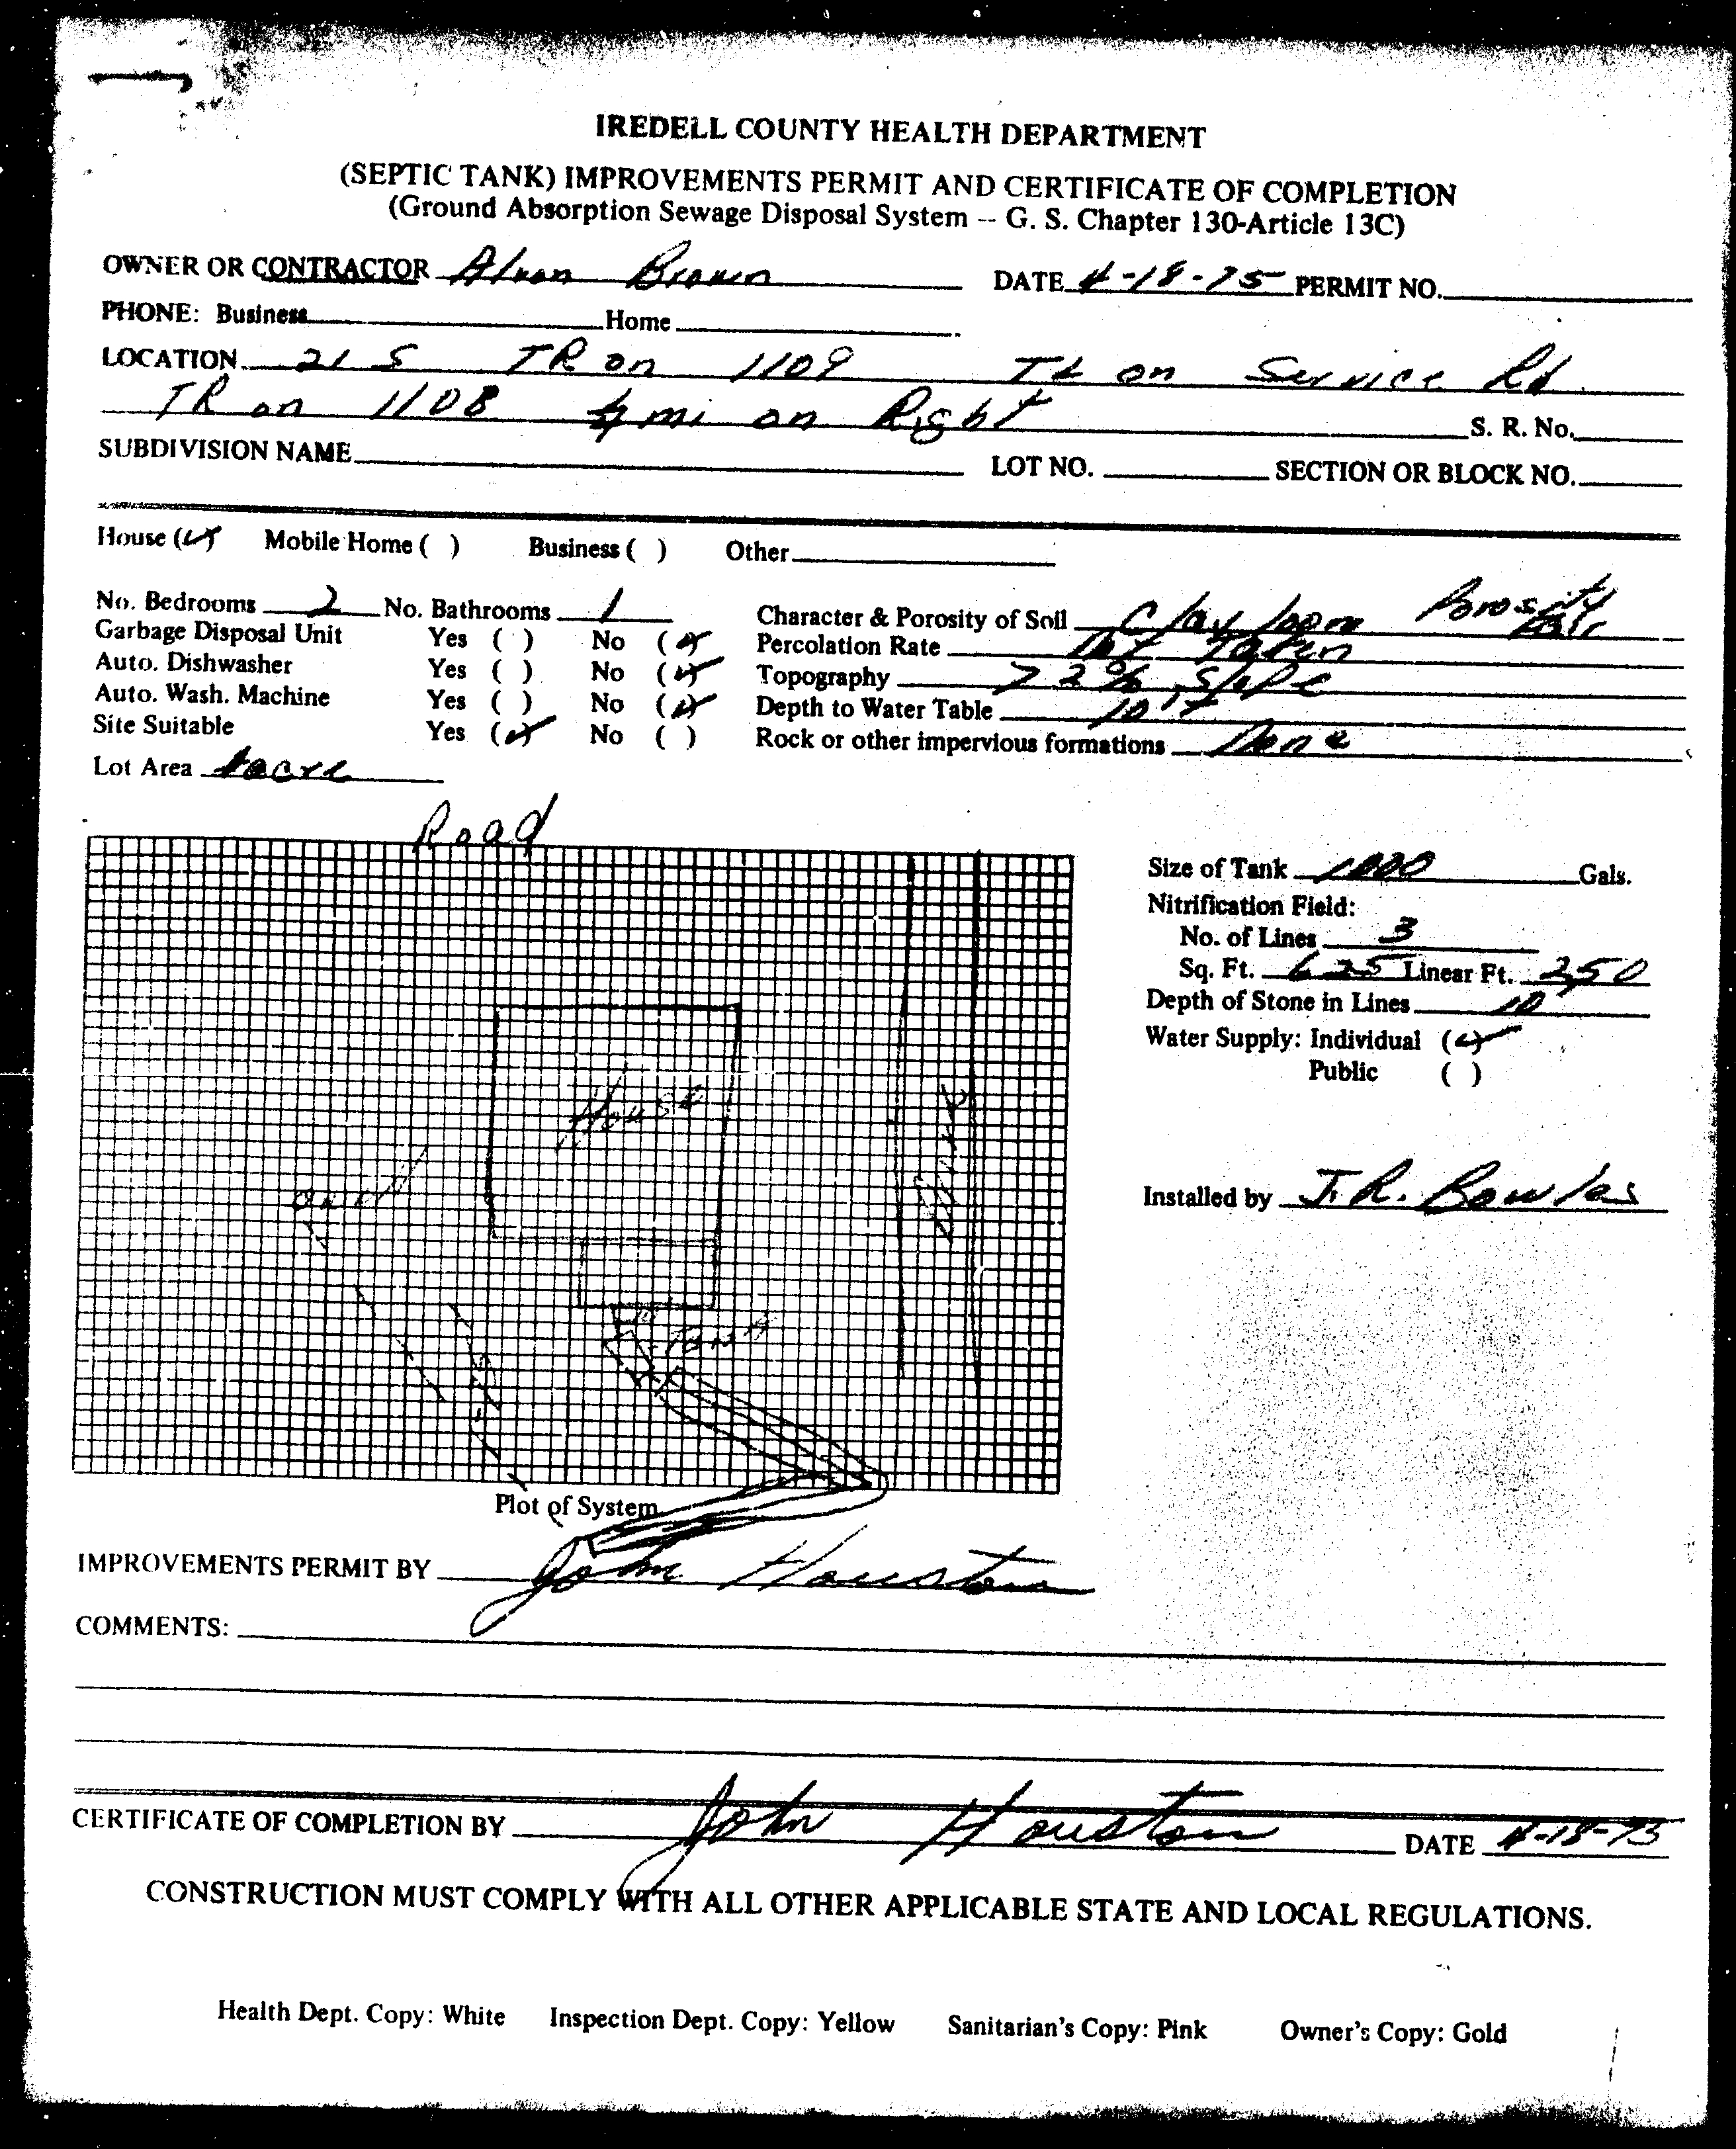 IREDELL COUNTY HEALTH DEPARTMENT
(SEPTIC TANK) IMPROVEMENTS PERMIT AND CERTIFICATE OF COMPLETION
(Ground Absorption Sewage Disposal System -- G. S. Chapter 130-Article 13C)
OWNER OR CONTRACTOR Brown DATE 4-18-75 PERMIT NO.
PHONE: Business Home
LOCATION 21 S TR on 1109 TL on Service Rd
TR on 1108 mi on Right S. R. No.
SUBDIVISION NAME LOT NO. SECTION OR BLOCK NO.
House (✓) Mobile Home ( ) Business ( ) Other
No. Bedrooms 2 No. Bathrooms 1 Character & Porosity of Soil Clay loom Porosity Fair
Garbage Disposal Unit Yes ( ) No (✓) Percolation Rate Not Taken
Auto. Dishwasher Yes ( ) No (✓) Topography > 2% Slope
Auto. Wash. Machine Yes ( ) No (✓) Depth to Water Table 10'+
Site Suitable Yes (✓) No ( ) Rock or other impervious formations None
Lot Area acre
Road
Size of Tank 1000 Gals.
Nitrification Field:
No. of Lines 3
Sq. Ft. 625 Linear Ft. 250
Depth of Stone in Lines 10
Water Supply: Individual (✓)
Public ( )
House
Tank
Installed by J. R. Bowles
Plot of System
IMPROVEMENTS PERMIT BY John Houston
COMMENTS:
CERTIFICATE OF COMPLETION BY John Houston DATE 4-18-75
CONSTRUCTION MUST COMPLY WITH ALL OTHER APPLICABLE STATE AND LOCAL REGULATIONS.
Health Dept. Copy: White Inspection Dept. Copy: Yellow Sanitarian's Copy: Pink Owner's Copy: Gold